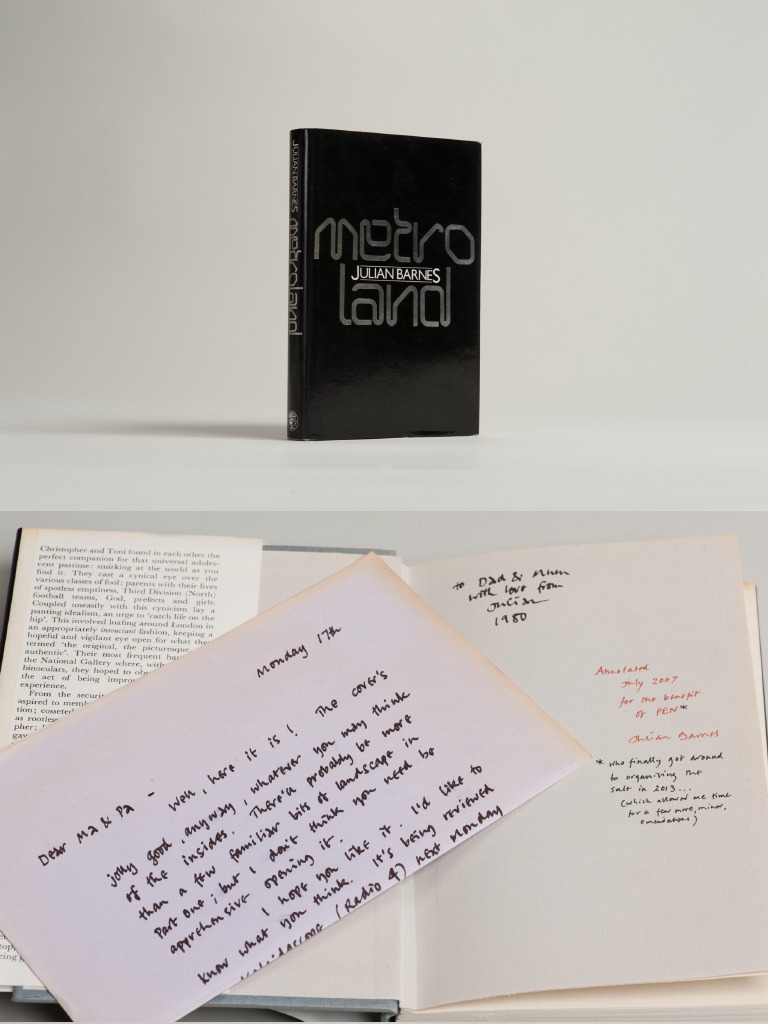 JULIAN BARNES metroland
metro
JULIAN BARNES
land
Christopher and Toni found in each other the
perfect companion for that universal adoles-
cent pastime: smirking at the world as you
find it. They cast a cynical eye over the
various classes of fool: parents with their lives
of spotless emptiness, Third Division (North)
football teams, God, prefects and girls.
Coupled uneasily with this cynicism lay a
panting idealism, an urge to 'catch life on the
hip'. This involved loafing around London in
an appropriately insouciant fashion, keeping a
hopeful and vigilant eye open for what they
termed 'the original, the picturesque,
authentic'. Their most frequent
the National Gallery where, with
binoculars, they hoped to
the act of being
experience.
From the
aspired to
tion;
as
Monday 17th
Dear Ma & Pa -
Well, here it is! The cover's
jolly good, anyway, whatever you may think
of the insides. There'll probably be more
than a few familiar bits of landscape in
Part One; but I don't think you need be
apprehensive opening it.
I hope you like it. I'd like to
know what you think. It's being reviewed
Kaleidoscope (Radio 4) next Monday
to Dad & Mum
with love from
Julian
1980
Annotated
July 2007
for the benefit
of PEN*
Julian Barnes
* who finally got around
to organising the
sale in 2013...
(which allowed me time
for a few more, minor,
emendations)